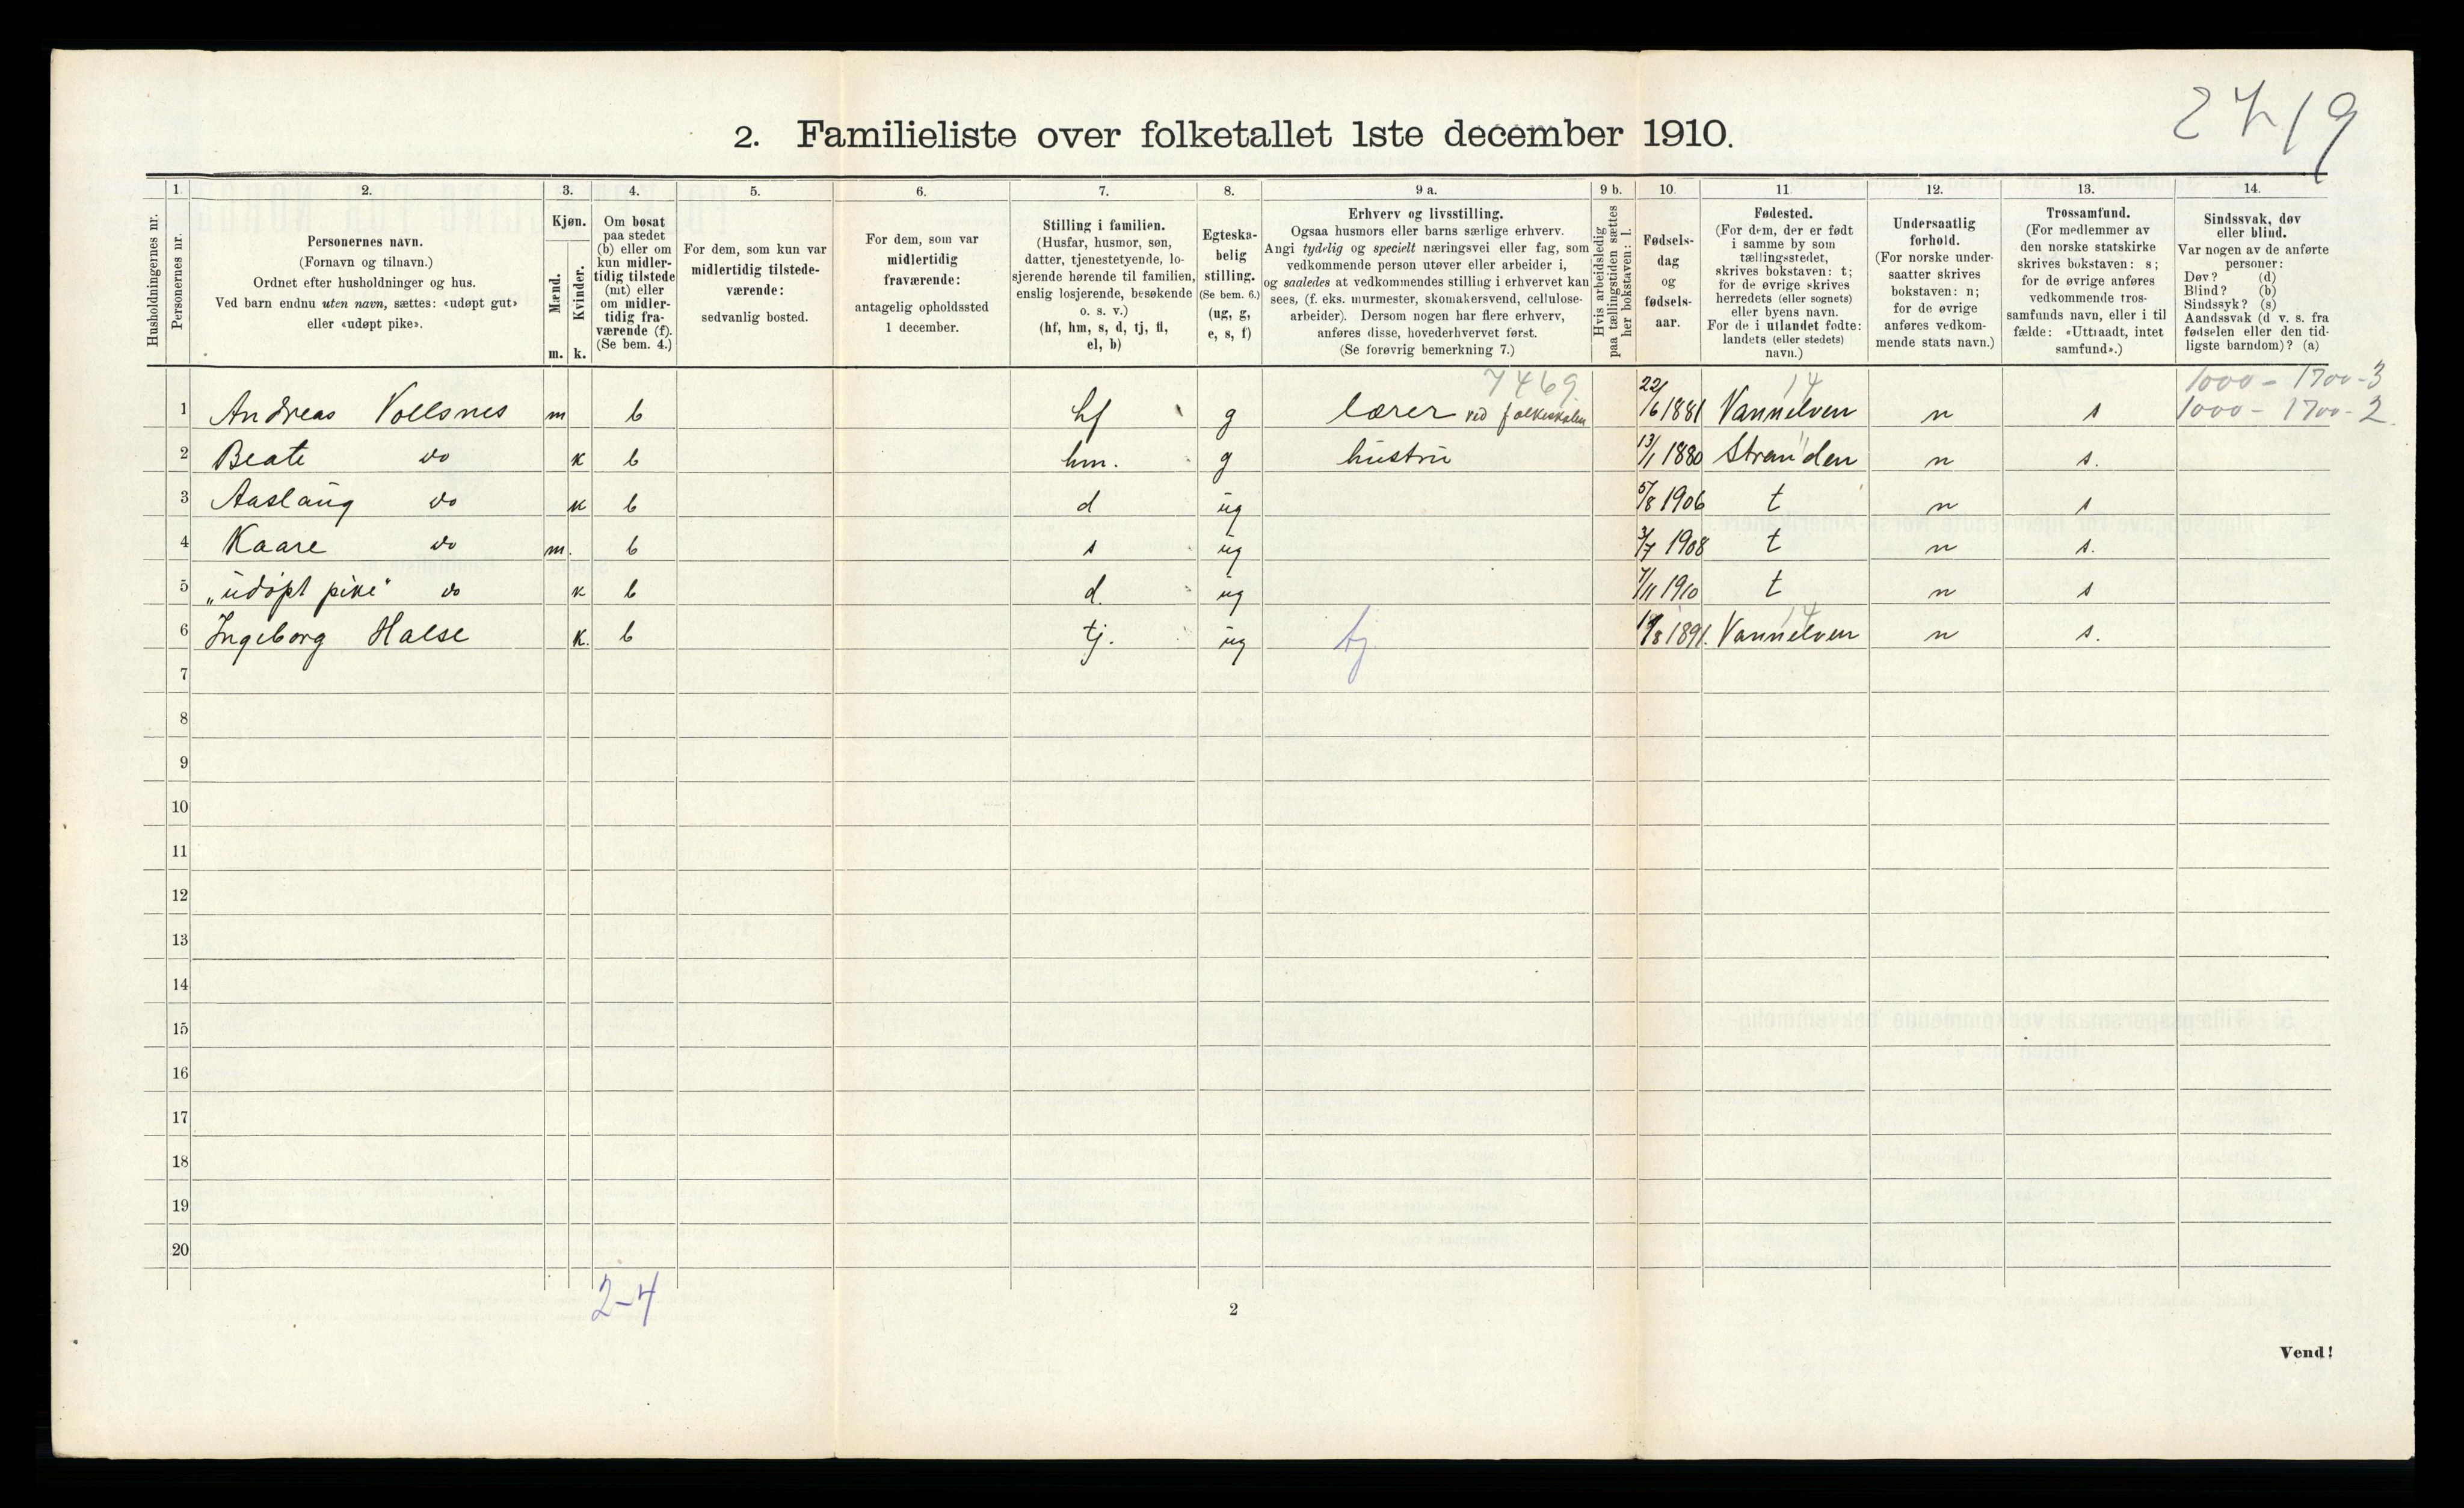 27/9
2. Familieliste over folketallet 1ste december 1910.
1. 2. 3. 4. 5. 6. 7. 8. 9 a. 9 b. 10. 11. 12. 13. 14.
Husholdningernes nr.
Personernes nr.
Personernes navn.
(Fornavn og tilnavn.)
Ordnet efter husholdninger og hus.
Ved barn endnu uten navn, sættes: «udøpt gut»
eller «udøpt pike».
Kjøn.
Mænd.
m.
Kvinder.
k.
Om bosat
paa stedet
(b) eller om
kun midler-
tidig tilstede
(mt) eller
om midler-
tidig fra-
værende (f).
(Se bem. 4.)
For dem, som kun var
midlertidig tilstede-
værende:
sedvanlig bosted.
For dem, som var
midlertidig
fraværende:
antagelig opholdssted
1 december.
Stilling i familien.
(Husfar, husmor, søn,
datter, tjenestetyende, lo-
sjerende hørende til familien,
enslig losjerende, besøkende
o. s. v.)
(hf, hm, s, d, tj, fl,
el, b)
Egteska-
belig
stilling.
(Se bem. 6.)
(ug, g,
e, s, f)
Erhverv og livsstilling.
Ogsaa husmors eller barns særlige erhverv.
Angi tydelig og specielt næringsvei eller fag, som
vedkommende person utøver eller arbeider i,
og saaledes at vedkommendes stilling i erhvervet kan
sees, (f. eks. murmester, skomakersvend, cellulose-
arbeider). Dersom nogen har flere erhverv,
anføres disse, hovederhvervet først.
(Se forøvrig bemerkning 7.)
Hvis arbeidsledig
paa tællingstiden sættes
her bokstaven: l.
Fødsels-
dag
og
fødsels-
aar.
Fødested.
(For dem, der er født
i samme by som
tællingsstedet,
skrives bokstaven: t;
for de øvrige skrives
herredets (eller sognets)
eller byens navn.
For de i utlandet fødte:
landets (eller stedets)
navn.)
Undersaatlig
forhold.
(For norske under-
saatter skrives
bokstaven: n;
for de øvrige
anføres vedkom-
mende stats navn.)
Trossamfund.
(For medlemmer av
den norske statskirke
skrives bokstaven: s;
for de øvrige anføres
vedkommende tros-
samfunds navn, eller i til-
fælde: «Uttraadt, intet
samfund».)
Sindssvak, døv
eller blind.
Var nogen av de anførte
personer:
Døv? (d)
Blind? (b)
Sindssyk? (s)
Aandssvak (d v. s. fra
fødselen eller den tid-
ligste barndom)? (a)
7469 14 1000 - 1700-3
1 Andreas Vollsnes m b hf g lærer ved folkeskolen 22/6 1881 Vannelven n s 1000 - 1700-2
2 Beate do k b hm. g hustru 13/1 1880 Stranden n s.
3 Aaslaug do k b d ug 5/8 1906 t n s
4 Kaare do m. b s ug 3/7 1908 t n s.
5 „udøpt pike" do k b d. ug 7/11 1910 t n s
14
6 Ingeborg Halse k. b tj. ug tj. 19/8 1891. Vannelven n s.
7
8
9
10
11
12
13
14
15
16
17
18
19
20
2-4
2
Vend!